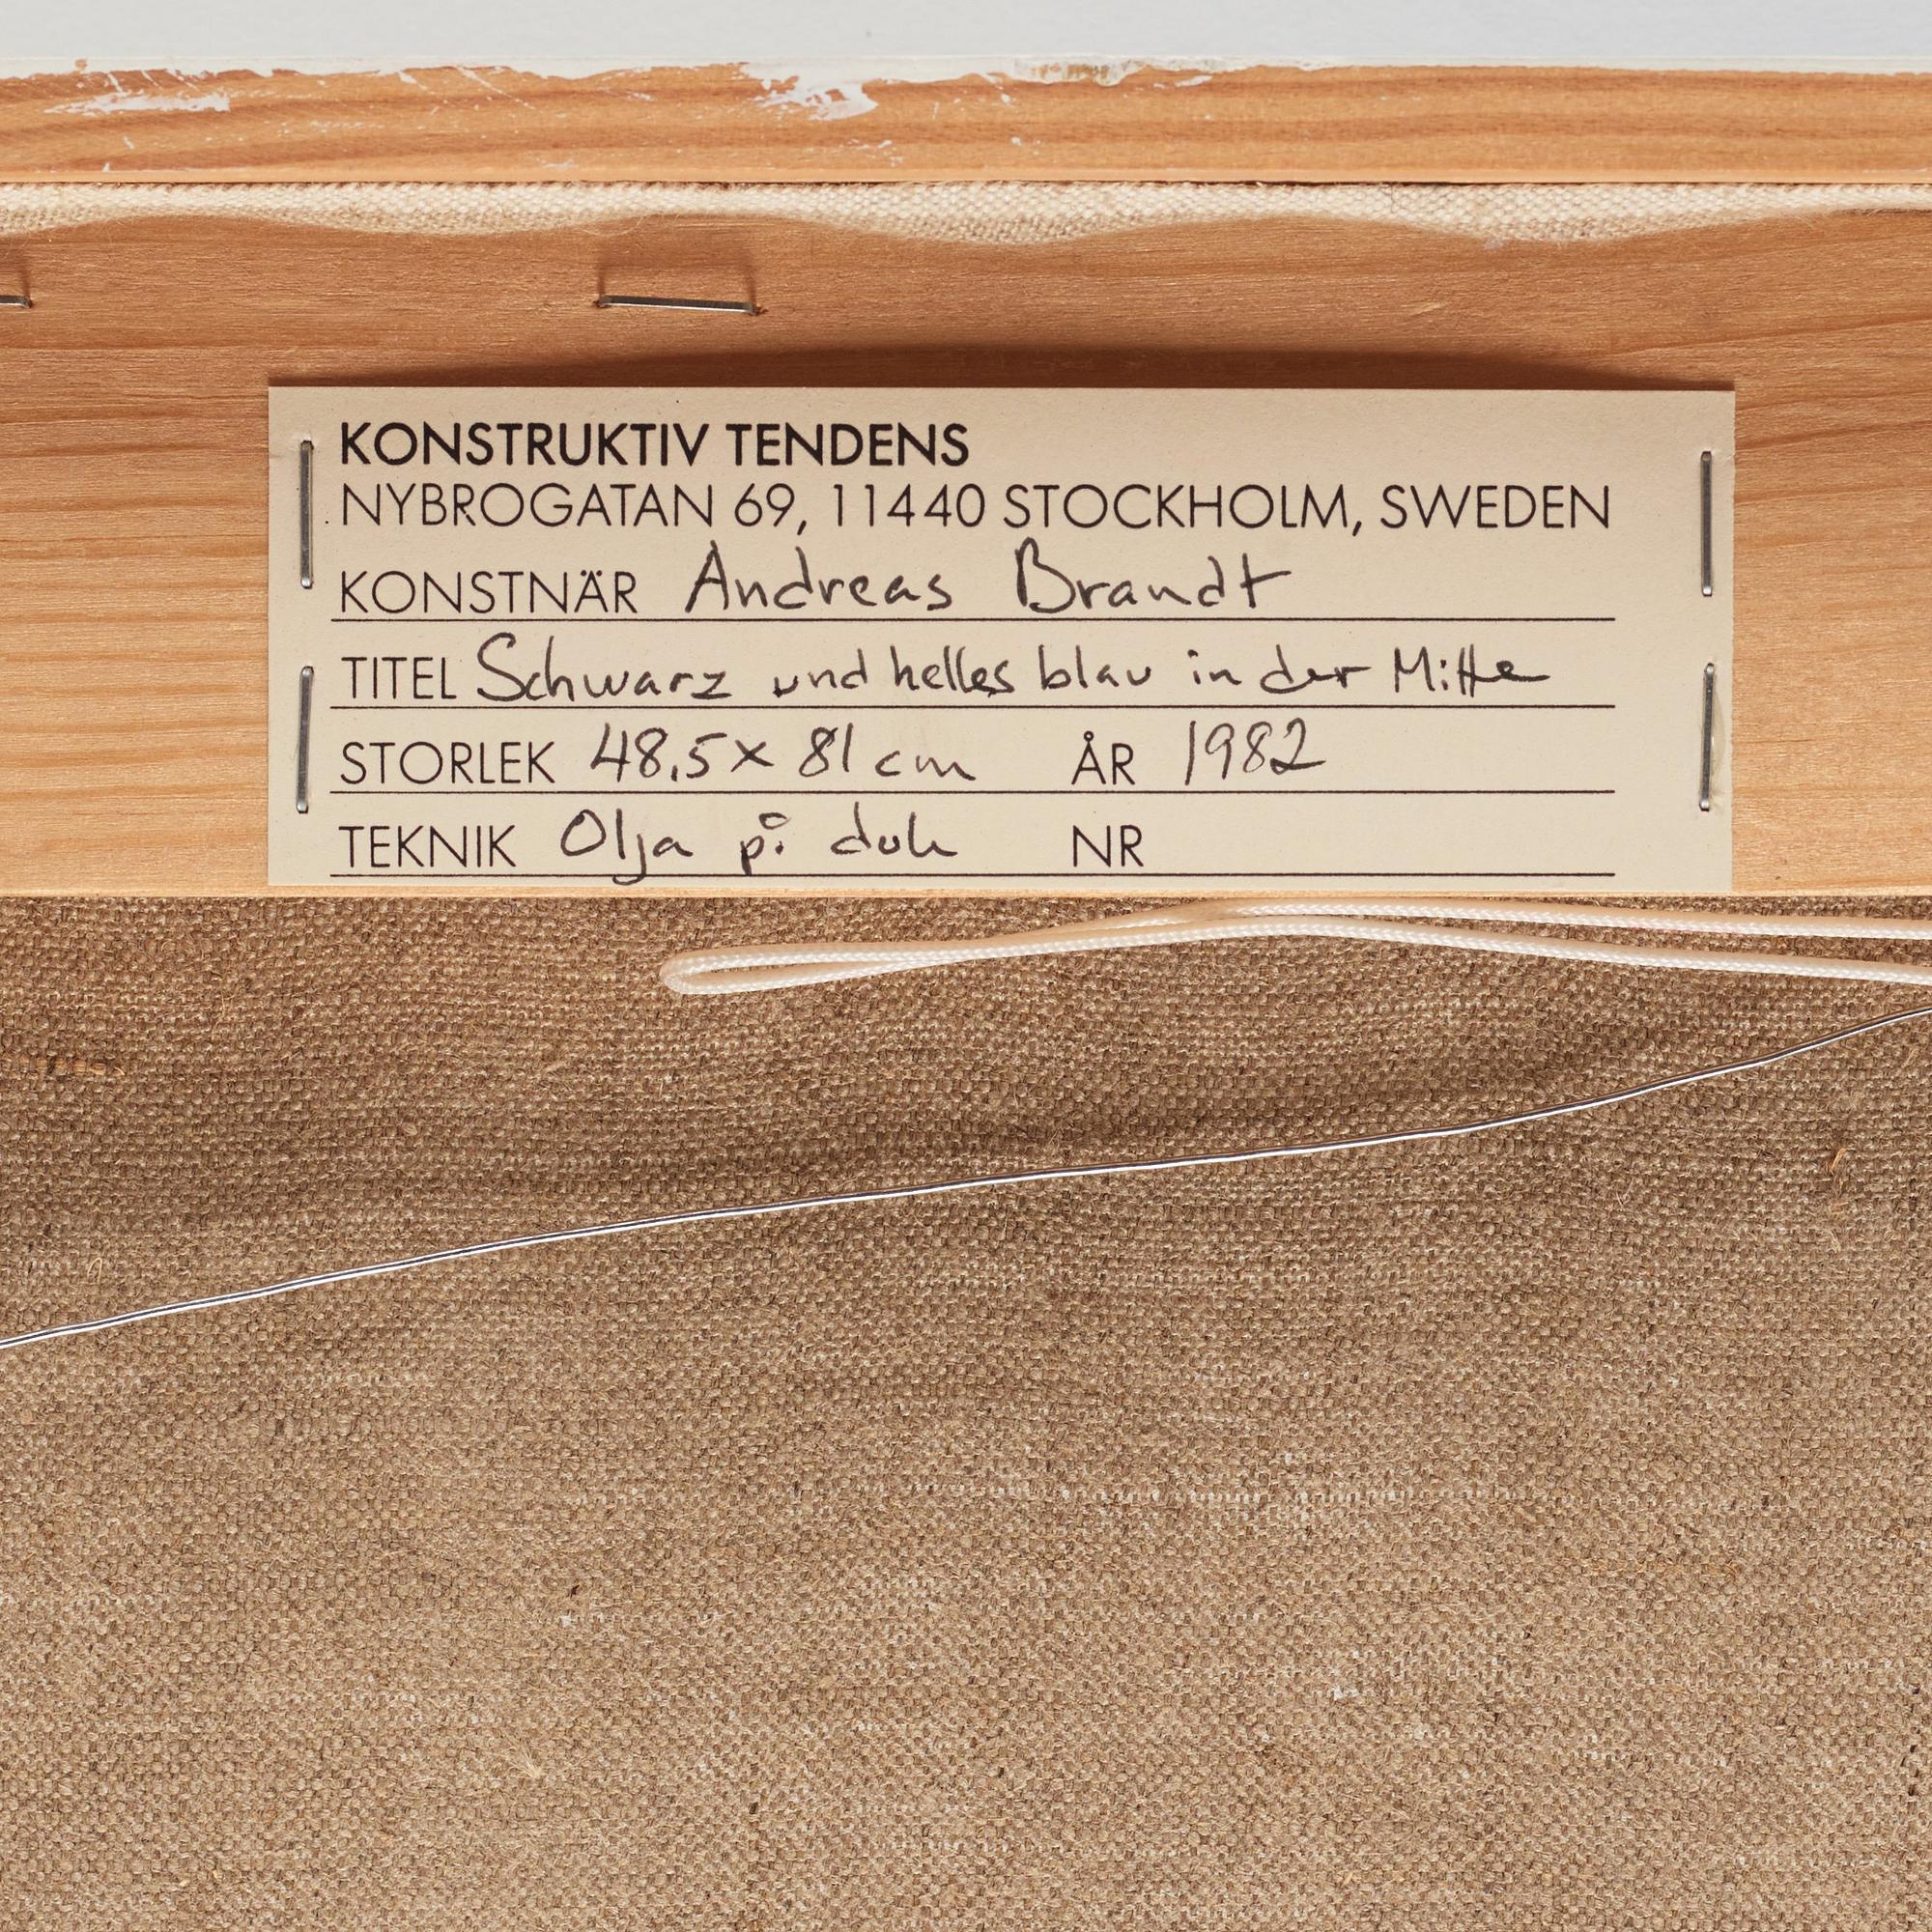 KONSTRUKTIV TENDENS
NYBROGATAN 69, 11440 STOCKHOLM, SWEDEN
KONSTNÄR Andreas Brandt
TITEL Schwarz und helles blau in der Mitte
STORLEK 48,5 x 81 cm ÅR 1982
TEKNIK Olja på duk NR